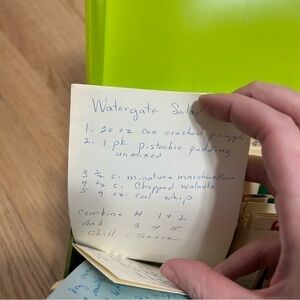 Watergate Sala
1. 20 oz can crushed pineapple
2. 1 pk. pistachio pudding
unmixed
3 ½ c. minature marshmellows
4 ½ c. Chopped walnuts
5 9 oz. cool whip
Combine # 1 + 2
And 3 4 5
Chill - Serve